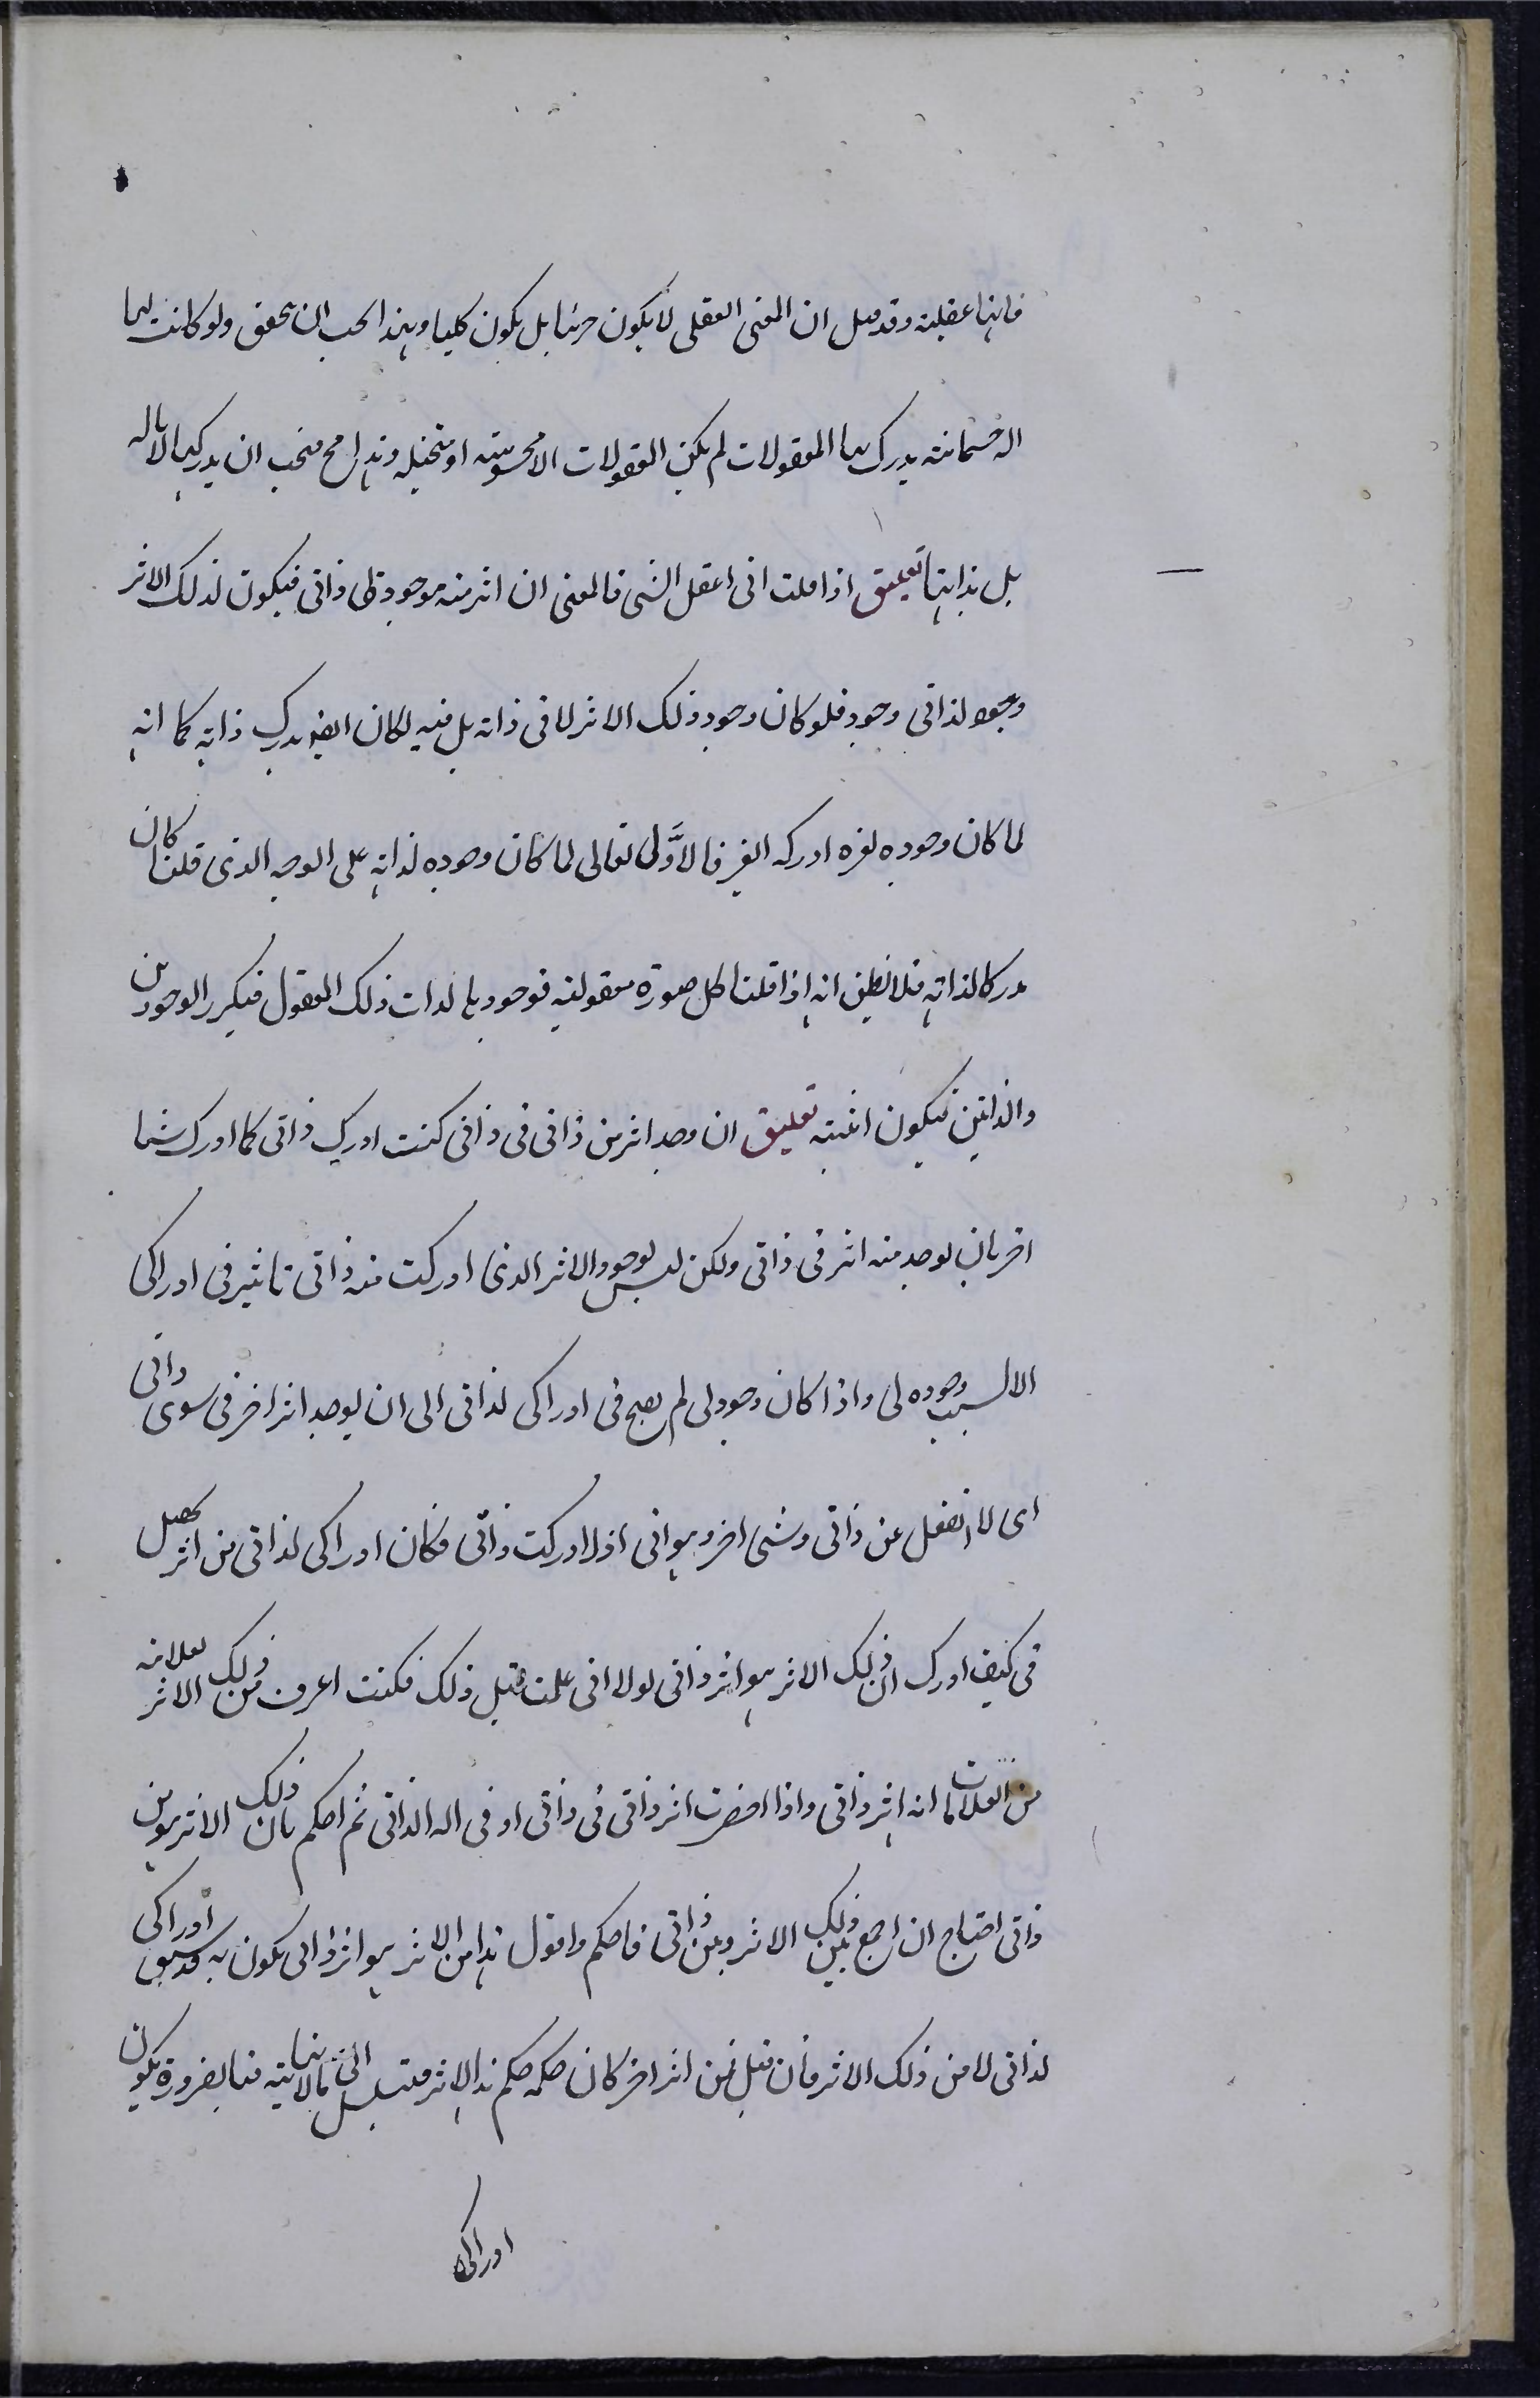 فانها عقلية وقد قيل ان المعنى العقلى لا يكون جزئيا بل يكون كليا وهذا يجب ان يحقق ولو كانت لها
اله جسمانية يدرك بها المعقولات لم يكن المعقولات الا محسوسة او متخيلة وهذا مح فيجب ان يدركها لا باله
بل بذاتها تعليق اذا قلت انى اعقل الشى فالمعنى ان اثر منه موجود فى ذاتى فيكون لذلك الاثر
وجود لذاتى وجود فلو كان وجود ذلك الاثر لا فى ذاته بل فيه لكان ايض يدرك ذاته كما انه
لما كان وجوده لغيره ادركه الغير فالاول تعالى لما كان وجوده لذاته على الوجه الذى قلنا كان
مدركا لذاته فلا نظن انه اذا قلنا كل صورة معقولية فوجودها لذات ذلك المعقول فيكرر الوجودين
والذاتين فيكون اثنينية تعليق ان وجد اثر من ذاتى فى ذاتى كنت ادرك ذاتى كما ادرك شيئا
اخر بان يوجد منه اثر فى ذاتى ولكن ليس لوجود الاثر الذى ادركت منه ذاتى تاثير فى ادراكى
الا لسبب وجوده لى واذا كان وجود لى لم يحتج فى ادراكى لذاتى الى ان يوجد اثر اخر فى سوى ذاتى
اى لا انفعل عن ذاتى وشى اخر وهو انى اذا ادركت ذاتى فكان ادراكى لذاتى من اثر يحصل
فى كيف ادرك ان ذلك الاثر هو اثر ذاتى لولا انى علمت قبل ذلك فكنت اعرف من ذلك الاثر لعلامة
من العلامات انه اثر ذاتى واذا احضرت اثر ذاتى فى ذاتى او فى اله لذاتى ثم احكم بان ذلك الاثر هو من
ذاتى احتاج ان اجمع بين ذلك الاثر وبين ذاتى فاحكم واقول هذا من الاثر هو اثر ذاتى يكون به قد سبق ادراكى
لذاتى لا من ذلك الاثر فان قيل من اثر اخر كان حكمه حكم هذا الاثر فتسلسل الى ما لا نهاية فبالضرورة يكون
ادراكى